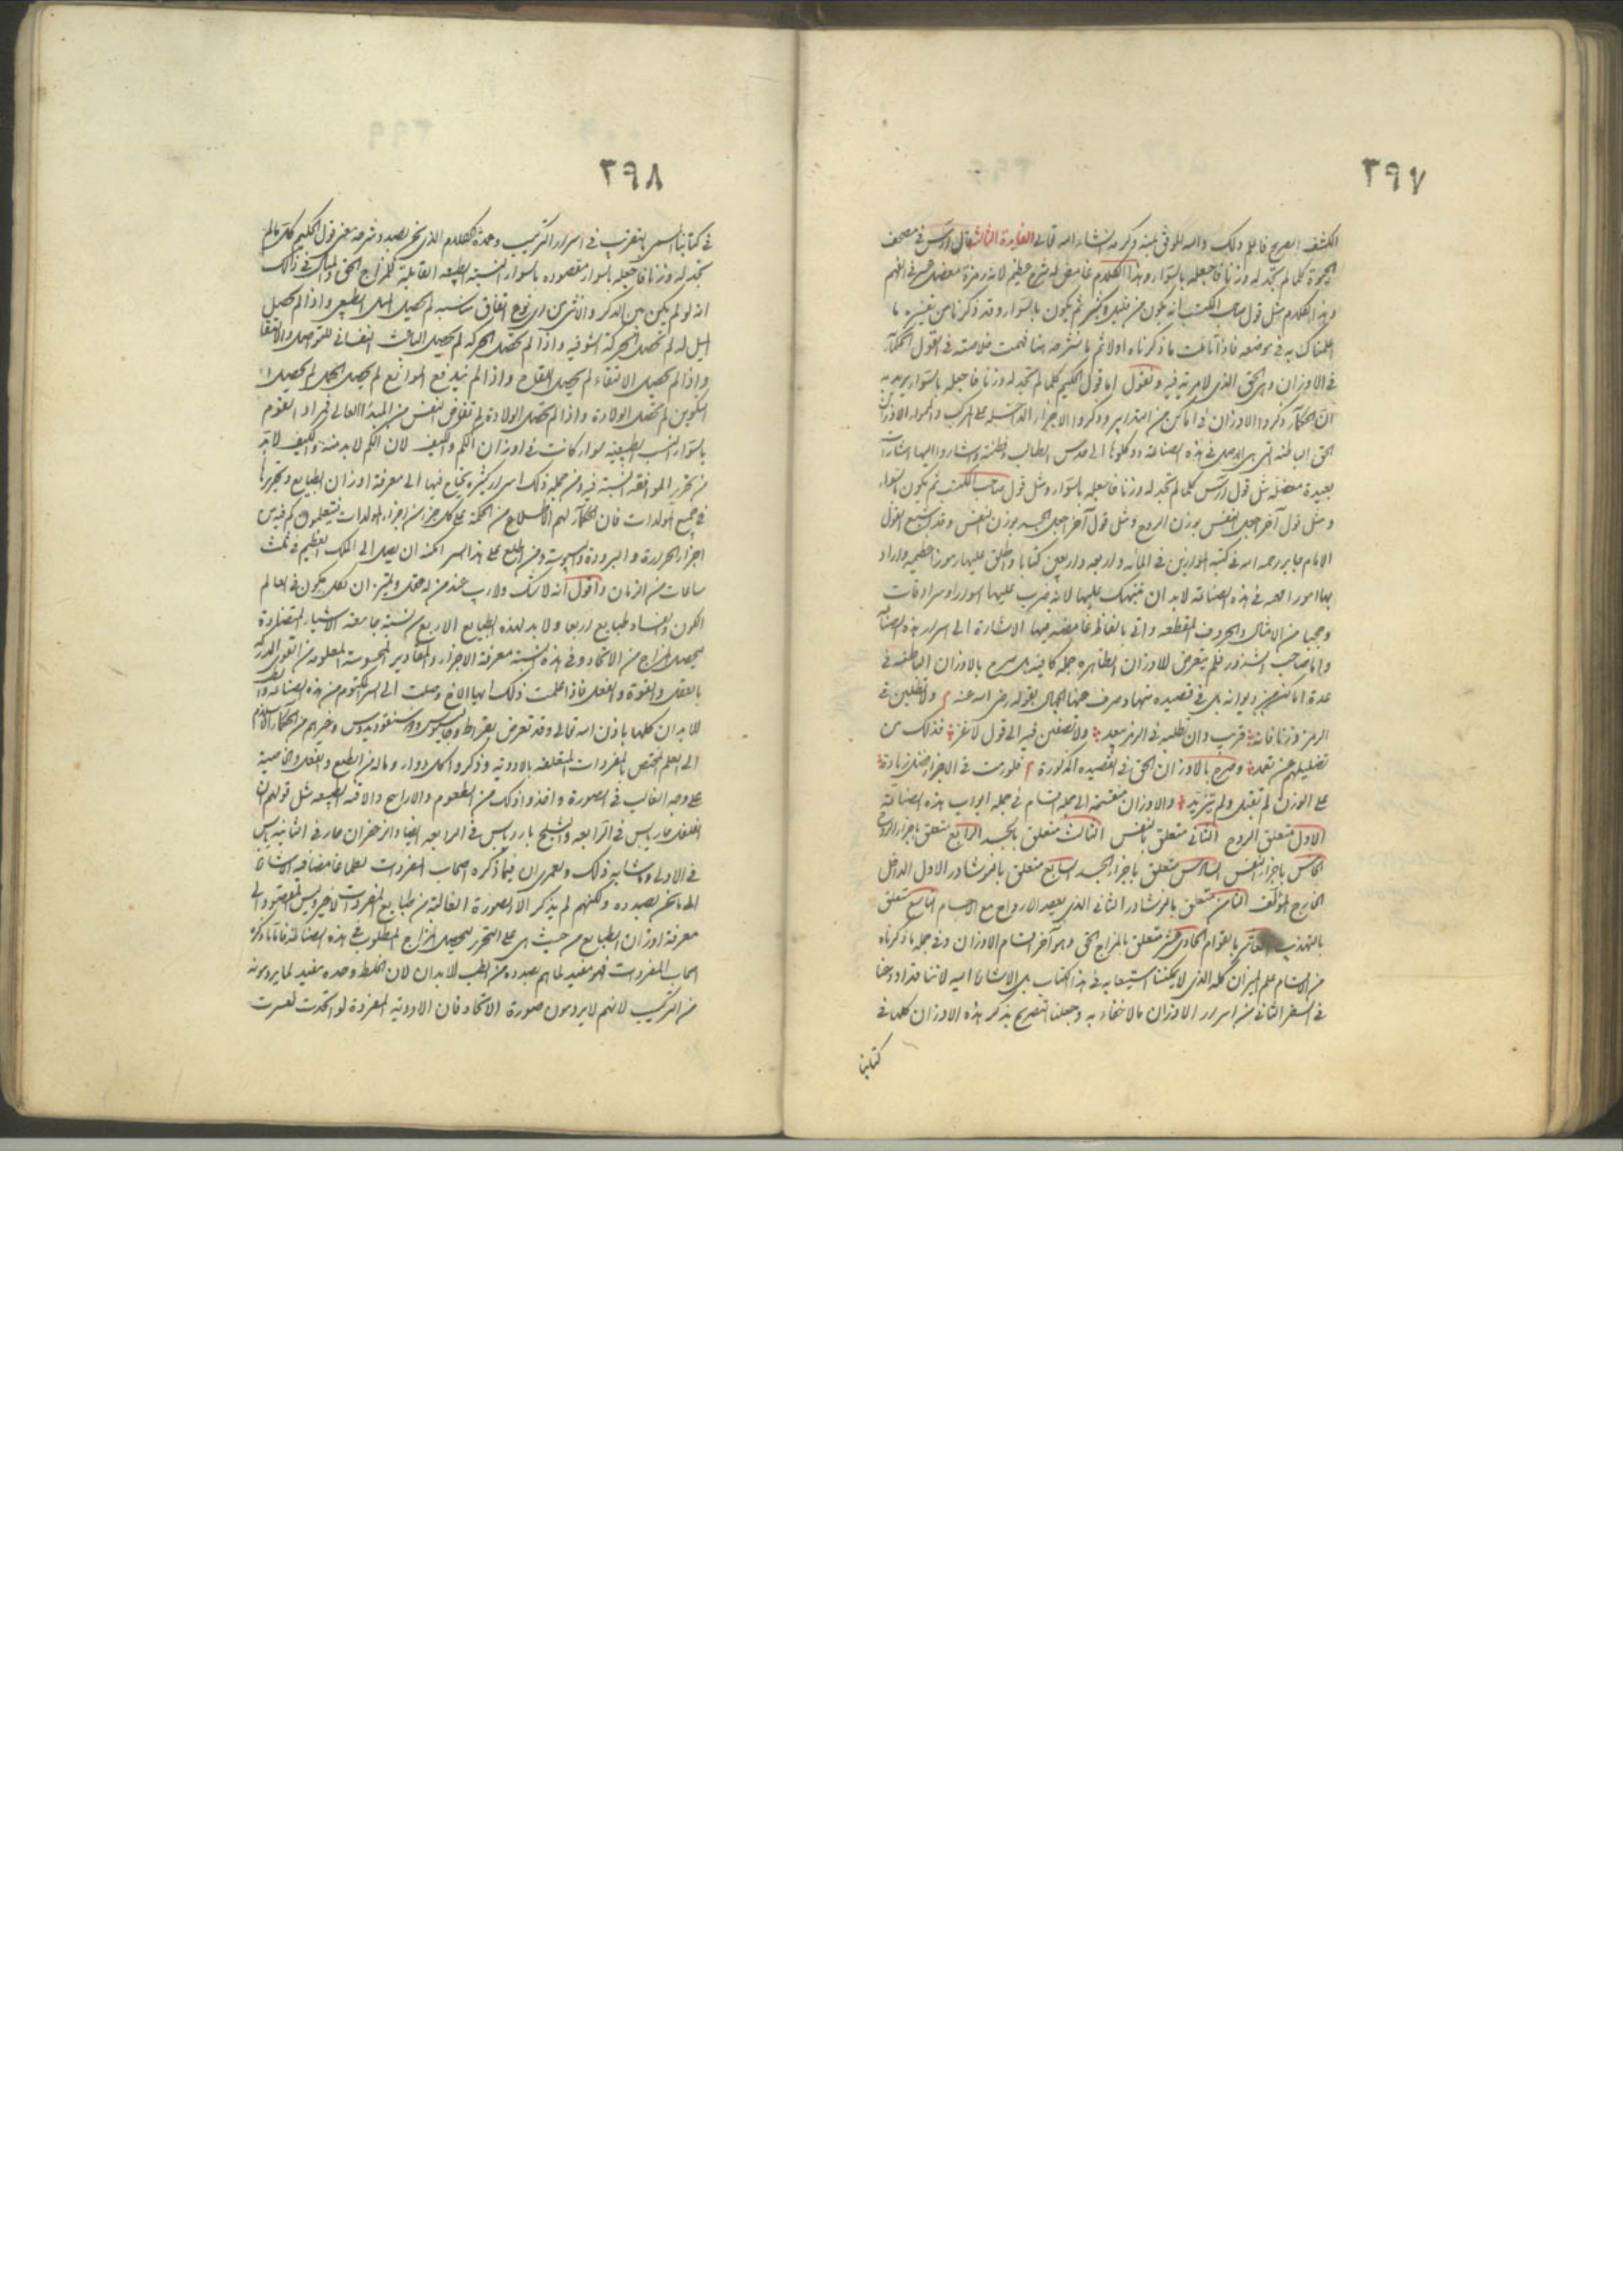 ٢٩٧
الكشف الصريح فاعلم ذلك والله الموفق بمنه وكرمه انشاء الله تعالى الفايدة الثالثة قال ارس في مصحف
كلما لم تجد له وزنا فاجعله بالسواء وهذا الكلام غامض له شرح عظيم لانه رمزة معضل في الفهم
وهذا الكلام مثل قول صاحب المكتسب انه يكون من قليل وكثير ثم يكون بالسواء وقد ذكرنا من تفسيره ما
اعلمناك به في موضعه فاذا تأملت ما ذكرناه اولا ثم ما نشرحه هنا فهمت خلاصته في القول الحكماء
في الاوزان وهي الحق الذي لا مرية فيه ونقول اما قول الحكيم كلما لم تجد له وزنا فاجعله بالسواء يريد به
ان الحكماء ذكروا الاوزان في اماكن من التدابير وذكروا الاجزاء الداخلة على المركب الاوزان
الحق الباطنة التي هي الاصل في هذه الصناعة ووكلوها الى حدس الطالب وفطنته واشاروا اليها اشارات
بعيدة معضلة مثل قول ارس كلما لم تجد له وزنا فاجعله بالسواء ومثل قول صاحب المكتسب ثم يكون بالسواء
ومثل قول آخر اجعل النفس بوزن الروح ومثل قول آخر اجعل الجسد بوزن النفس وقد اشبع القول
الامام جابر رحمه الله في كتبه الموازين في المائه واربعه واربعين كتابا واطلق عليها رموز عظيمه واراد
بها امور في هذه الصناعة لا بد ان ننبهك عليها لانه ضرب عليها اسوارا وسرادقات
وحجبا من الامثال والحروف المقطعه واتى بالفاظ غامضه فيها الاشارة الى اسرار هذه الصناعة
واما صاحب الشذور فلم يتعرض للاوزان الظاهرة جملة كافية بل صرح بالاوزان الباطنه في
عدة اماكن من ديوانه بل في قصيده منها وصرف عنها الجهال بقوله رضي الله عنه ولا تطلبن في
الرمز وزنا فانه قريب وان تطلبه في الرمز يبعد ولا تصغين فيه الى قول لاغز فذلك من
تضليلهم عن تعمد وصرح بالاوزان الحق في القصيده المذكورة فلو زدت في الاجزاء فضل زيادة
على الوزن لم تقبل ولم تتزيد والاوزان منقسمة الى جملة اقسام في جمله ابواب هذه الصناعة
الاول متعلق الروح الثاني متعلق بالنفس الثالث متعلق بالجسد الرابع متعلق باجزاء الروح
الخامس باجزاء النفس السادس متعلق باجزاء الجسد السابع متعلق بالنوشادر الاول الداخل
الخارج المؤلف الثامن متعلق بالنوشادر الثاني الذي يعقد الارواح مع الاجسام التاسع متعلق
بالتهذيب العاشر بالقوام الحادي عشر متعلق بالمزاج الحق وهو آخر اقسام الاوزان وفي جملة ما ذكرناه
من اقسام علم الميزان كله الذي لا يمكننا استيعابه في هذا الكتاب بل الاشارة اليه لاننا قد اودعنا
في السفر الثاني من اسرار الاوزان ما لا خفاء به وجعلنا التصريح بذكر هذه الاوزان كلها في
كتابنا
٢٩٨
في كتابنا المسمى بالتقريب في اسرار التركيب وعمدة الكلام الذي نحن بصدد شرحه معنى قول الحكيم كل ما لم
تجد له وزنا فاجعله بالسواء مقصوده بالسواء النسبة الطبيعيه القابلة للمزاج الحق والمثال في ذلك
انه لو لم يكن بين الذكر والانثى من اي نوع اتفاق مناسبه لم يحصل الميل الطبيعي واذا لم يحصل
الميل له لم تحصل الحركة الشوقيه واذا لم تحصل الحركه لم يحصل الباعث النفساني للتواصل والالتقاء
واذا لم يحصل الالتقاء لم يحصل اللقاح واذا لم يندفع الموانع لم يحصل الحمل لم يحصل
التكوين لم تحصل الولادة واذا لم تحصل الولادة لم تفاض النفس من المبدأ العالي فمراد القوم
بالسواء النسب الطبيعيه سواء كانت في اوزان الكم والكيف لان الكم لا بد منه والكيف لا بد
من تحرير الموافقة النسبة فيه ومن جملة ذلك اسرار كثيرة يحتاج فيها الى معرفة اوزان الطبايع وتحريرها
في جميع المولدات فان الحكماء لهم الاطلاع من الحكمة على كل جزء من اجزاء المولدات فيعلمون كم فيه من
اجزاء الحرارة والبرودة واليبوسة ومن اطلع على هذا السر امكنه ان يصل الى الملك العظيم في ثلث
ساعات من الزمان واقول انه لا شك ولا ريب عند من له عقل وتميز ان لكل مكون في عالم
الكون والفساد طبايع اربعا ولا بد لهذه الطبايع الاربع من نسبة جامعة الاشياء المتضادة
ليحصل المزاج من الاتحاد وفي هذه النسبة معرفة الاجزاء والمقادير المحسوسة المعلومة من القوى المدركة
بالعقل والقوة والفعل فاذا علمت ذلك ايها الاخ وصلت الى السر المكتوم من هذه الصناعة
للابدان كلها باذن الله تعالى وقد تعرض بقراط وجالينوس وديسقوريدوس وغيرهم من الحكماء
الى العلم المختص بالمفردات المتعلقه بالادويه وذكروا كل دواء وماله من الطبع والفعل والخاصية
على وجه الغالب في الصورة واخذوا ذلك من الطعوم والاراييح والآفة الطبيعه مثل قولهم ان
الفلفل حار يابس في الرابعه والثلج بارد يابس في الرابعه ايضا والزعفران حار في الثانيه يابس
في الاولى وما شابه ذلك ولعمري ان فيما ذكره اصحاب المفردات لعلما غامضا فيه اشارة
الى ما نحن بصدده ولكنهم لم يذكر الا الصورة الغالبة من طبايع المفردات لا غير وليس المقصود الى
معرفة اوزان الطبايع من حيث هي على التحرير ليحصل المزاج المطلوب في هذه الصناعة فاما ما ذكره
اصحاب المفردات فهو مفيد لما هم بصدده من الطب للابدان لان الخلط وحده مفيد لما يرومونه
من التركيب لانهم لا يرومون صورة الاتحاد فان الادوية المفردة لو اتحدت لعسرت